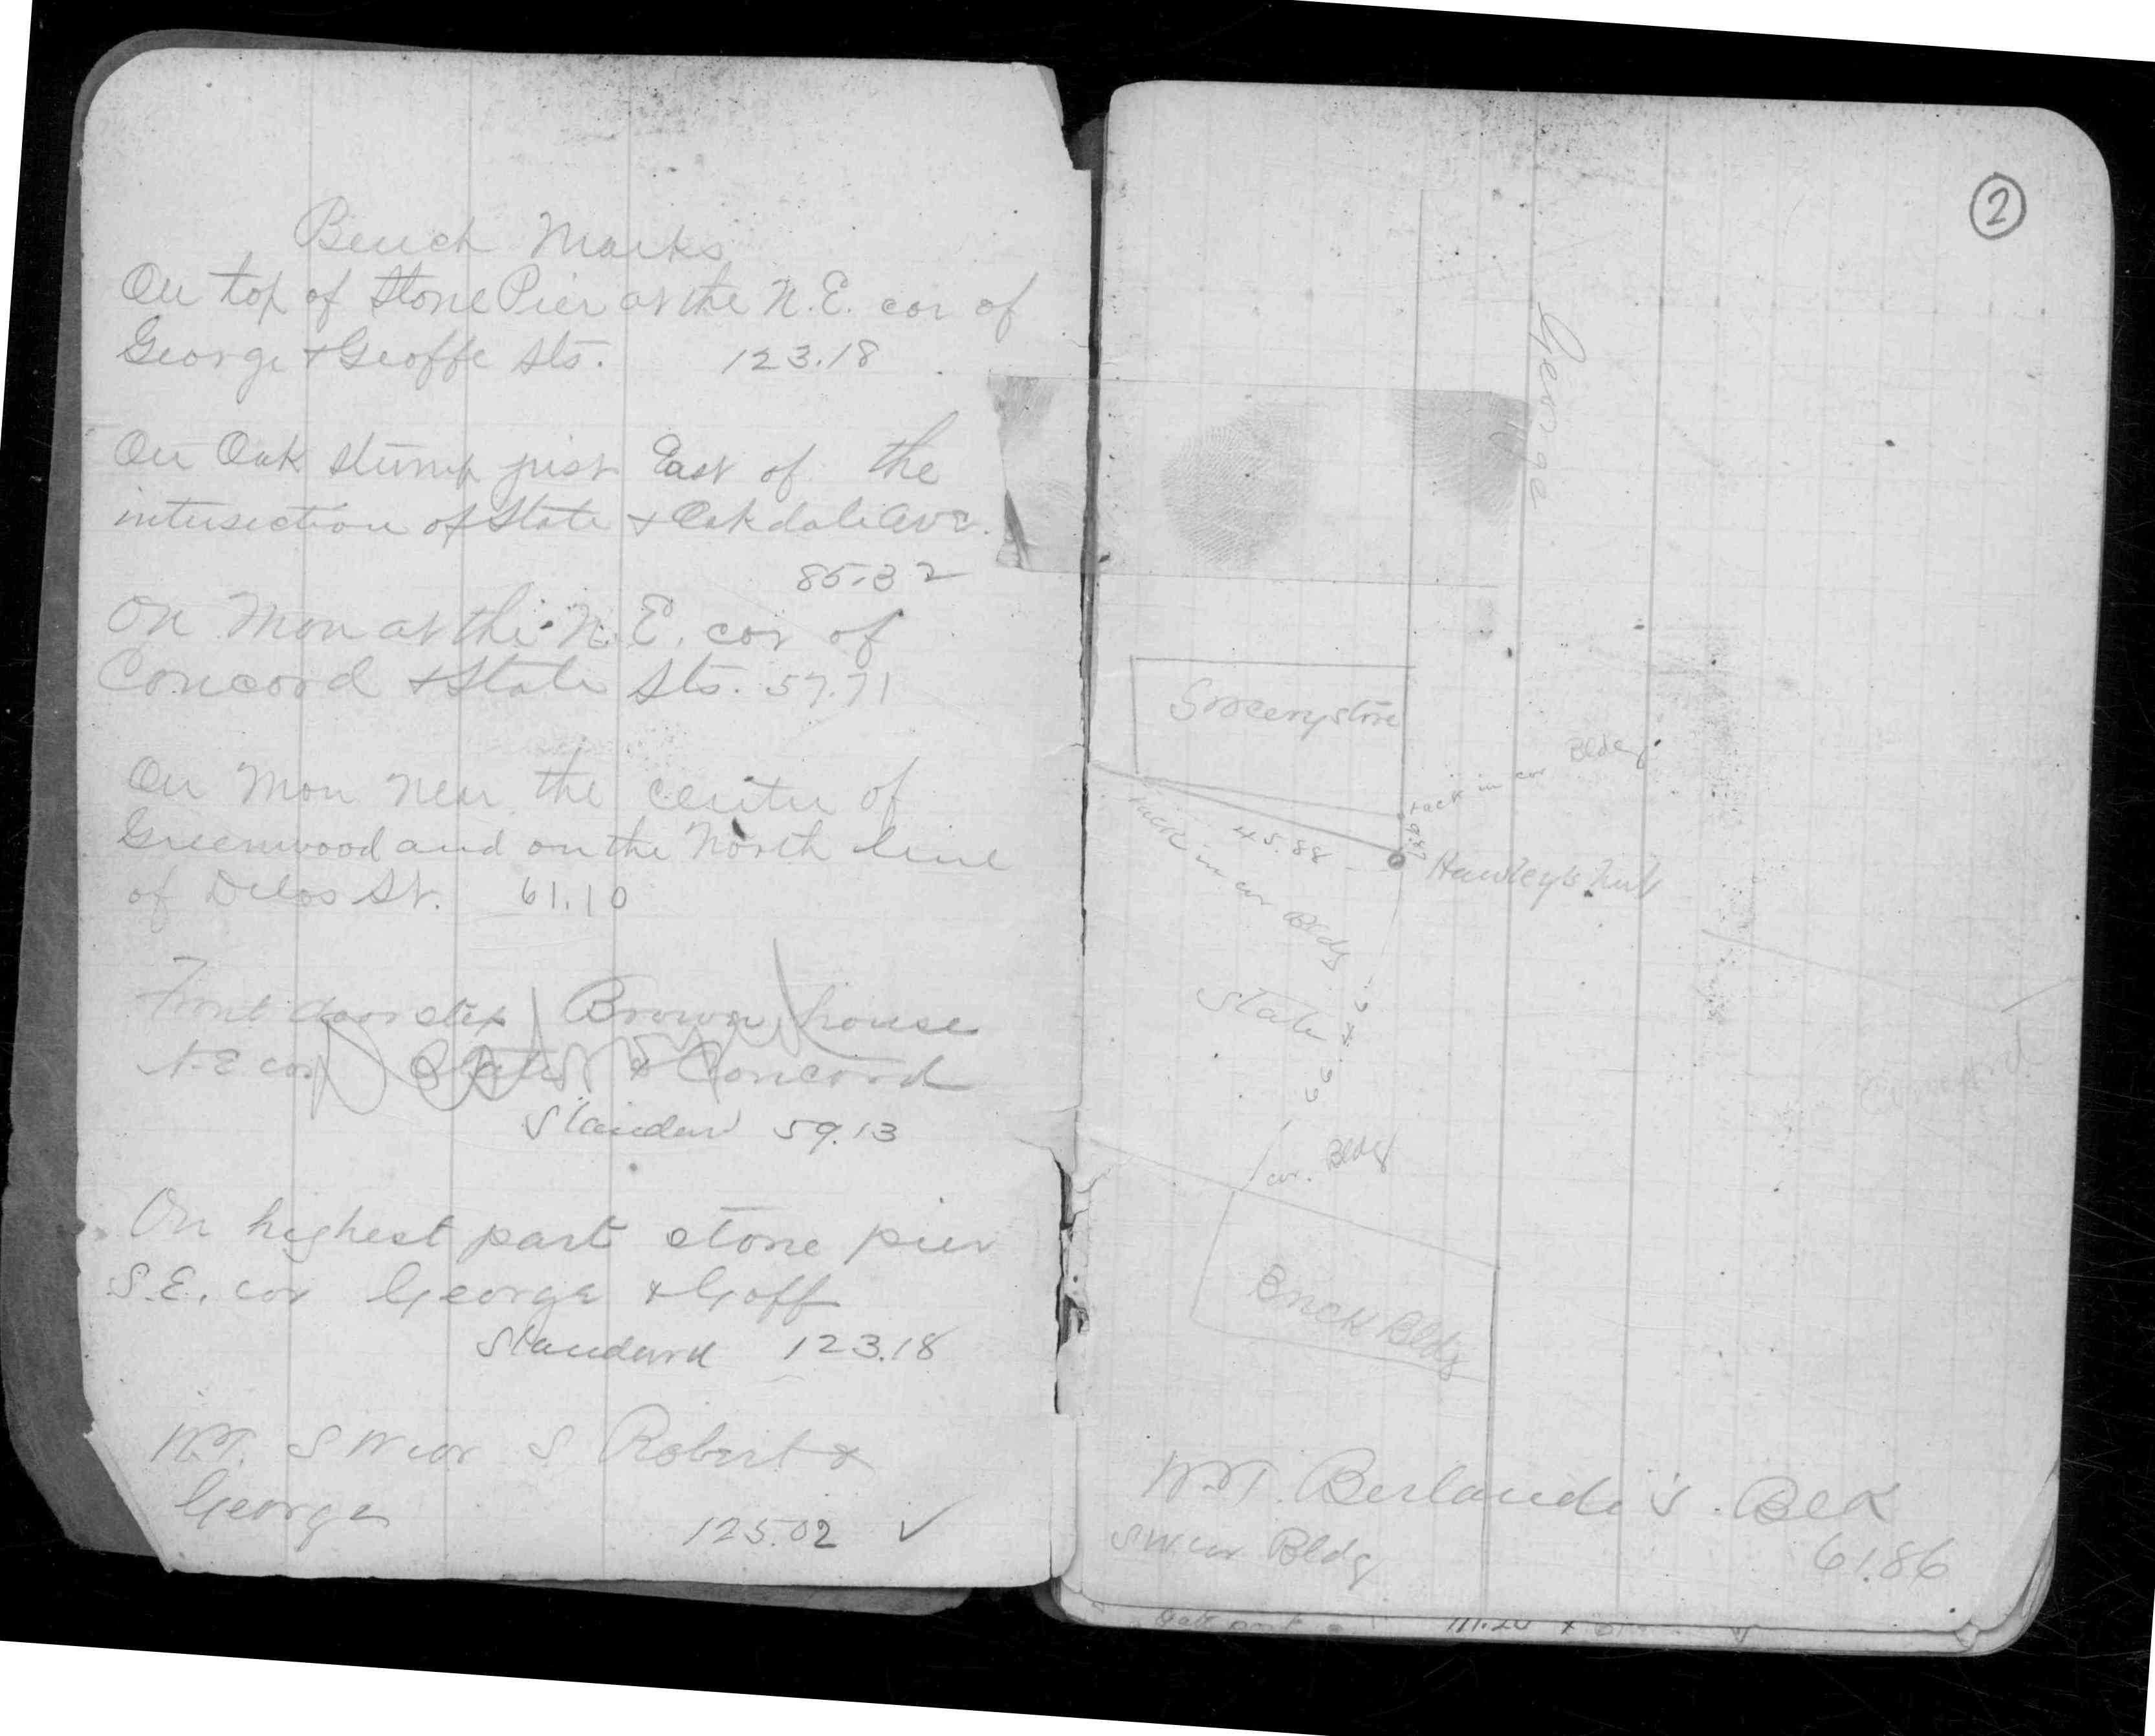 Bench Marks
On top of Stone Pier at the N.E. cor of
George & Geoffe Sts. 123.18
On Oak stump just East of the
intersection of State & Oakdale Ave.
85.32
On Mon at the N.E. cor of
Concord & State Sts. 57.71
On Mon near the center of
Greenwood and on the North line
of Delos St. 61.10
Front door step Brown house
N.E cor State & Concord
Standard 59.13
On highest part stone pier
S.E. cor George & Goff
Standard 123.18
W.T. S W cor S Robert &
George
125.02 ✓
2
George
Grocery store
tack in cor Bldg
9.87
45.88
Hawley's hub
tack in cor Bldg
State
Concord
cor. Bldg
Brick Bldg
W.T. Berlandi's. Blk
SW cor Bldg 61.86
Gate post